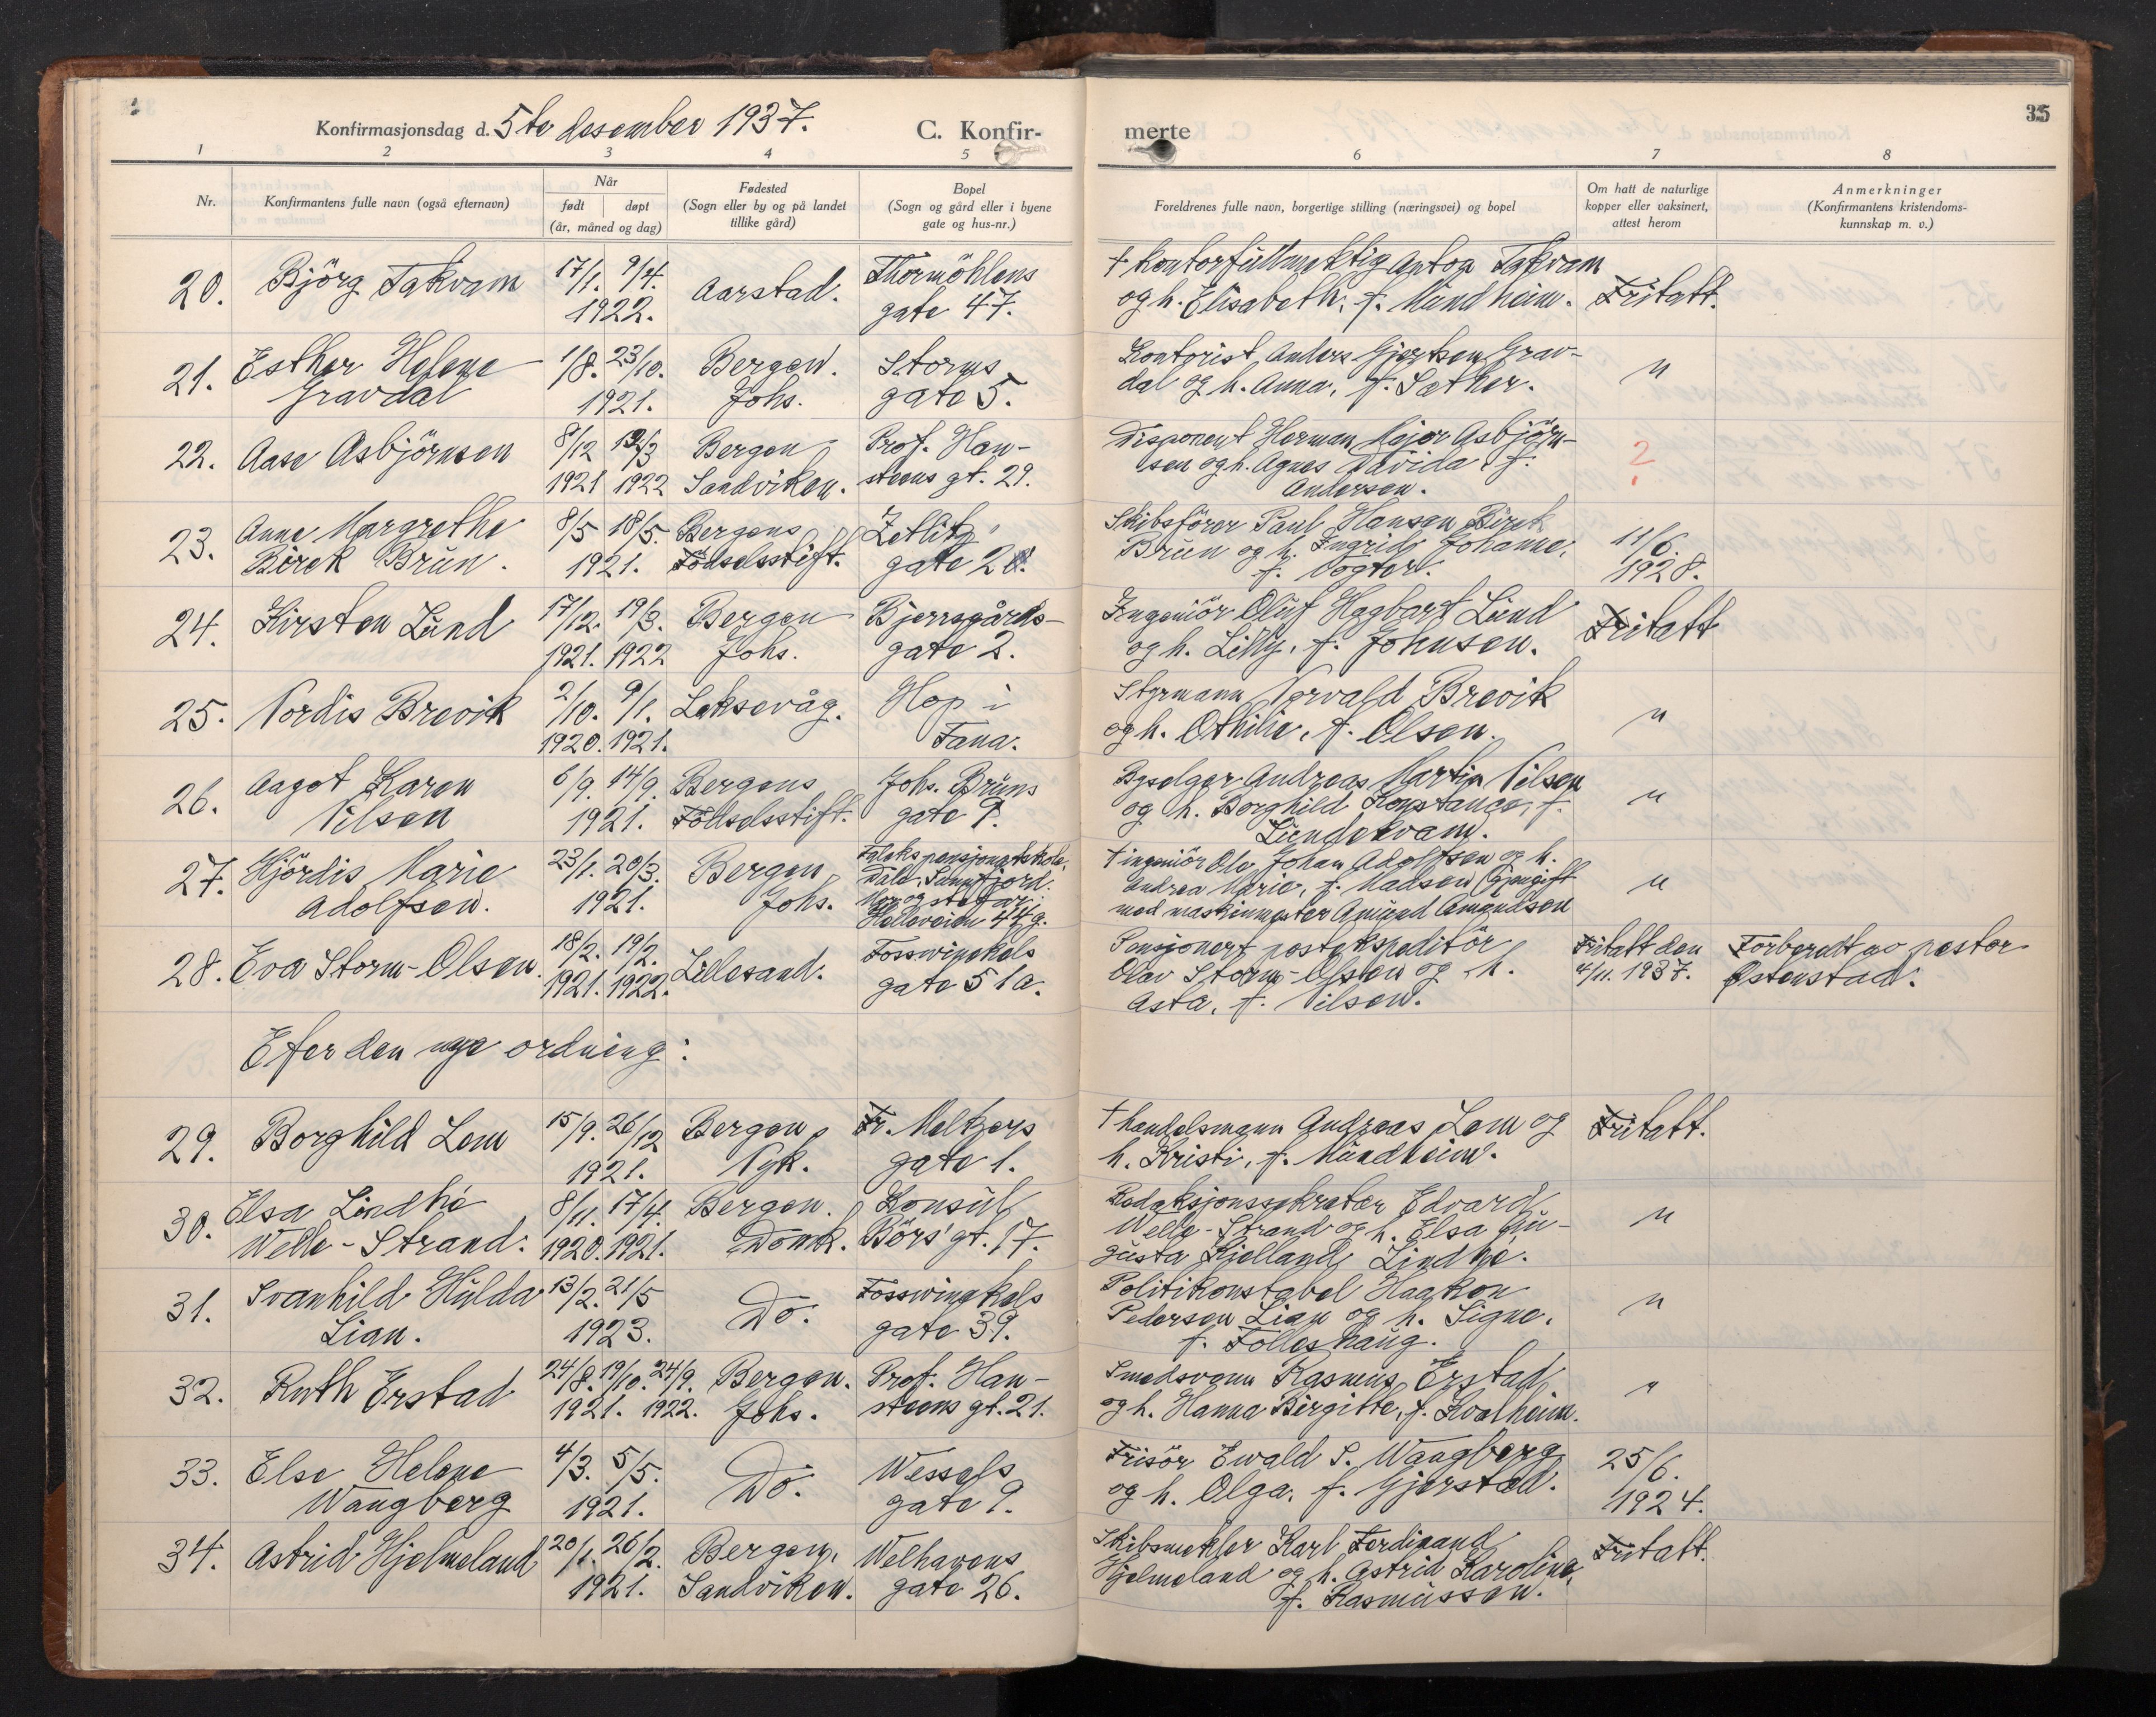 Konfirmasjonsdag d. 5te desember 1937.
C. Konfir-
merte
35
1 2 3 4 5 6 7 8
Nr.
Konfirmantens fulle navn (også efternavn)
Når
født døpt
(år, måned og dag)
Fødested
(Sogn eller by og på landet
tillike gård)
Bopel
(Sogn og gård eller i byene
gate og hus-nr.)
Foreldrenes fulle navn, borgerlige stilling (næringsvei) og bopel
Om hatt de naturlige
kopper eller vaksinert,
attest herom
Anmerkninger
(Konfirmantens kristendoms-
kunnskap m. v.)
20. Björg Takvam
17/1. 9/4.
1922.
Aarstad.
Thormöhlens
gate 47.
† Kontorfullmektig Anton Takvam
og h. Elisabeth, f. Mundheim.
Fritatt.
21. Esther Helene
Gravdal
1/8. 23/10.
1921.
Bergen.
Johs.
Storms
gate 5.
Kontorist Anders Gjertsen Grav-
dal og h. Anna, f. Sæther.
"
22. Aase Asbjörnsen
8/12 12/3
1921 1922
Bergen
Sandviken.
Prof. Han-
steens gt. 29.
Disponent Herman Major Asbjörn-
sen og h. Agnes Davida, f.
Andersen.
?
23. Anne Margrethe
Birck Brun.
8/5 18/5.
1921.
Bergens
Födselsstift.
Zetlitz
gate 2
Skibsförer Paul Hansen Birck
Brun og h. Ingrid Johanne,
f. Vogter.
11/6.
1928.
24. Kirsten Lund
17/12. 19/3.
1921. 1922
Bergen
Johs.
Bjerregårds-
gate 2.
Ingeniör Oluf Hagbart Lund
og h. Lilly, f. Johnsen.
Fritatt
25. Nordis Brevik
2/10. 9/1.
1920. 1921.
Laksevåg.
Hop i
Fana.
Styrmann Norvald Brevik
og h. Othilie, f. Olsen.
"
26. Aagot Karen
Nilsen
6/9. 14/9.
1921.
Bergens
Födselsstift.
Johs. Bruns
gate 9.
Byselger Andreas Martin Nilsen
og h. Borghild Konstance, f.
Lundekvam.
"
27. Hjördis Marie
Adolfsen.
23/1. 20/3.
1921.
Bergen
Johs.
Faleks pensjonatskole,
Dale, Sunnfjord.
Mor og stefar:
Helleveien 44g.
† ingeniör Ole Johan Adolfsen og h.
Andrea Marie, f. Madsen (gjengift
med maskinmester Amund Amundsen
"
28. Eva Storm-Olsen.
18/2. 19/2.
1921. 1922.
Lillesand.
Fosswinckels
gate 51a.
Pensjonert postekspeditör
Olav Storm-Olsen og h.
Asta, f. Nilsen.
Fritatt den
4/11. 1937.
Forberedt av pastor
Østenstad.
Efter den nye ordning:
29. Borghild Lem
15/9. 26/12
1921.
Bergen
Nyk.
Fr. Meltzers
gate 1.
† handelsmann Andreas Lem og
h. Kristi, f. Mundheim.
Fritatt.
30. Elsa Lindhé
Welle-Strand.
8/11. 17/4.
1920. 1921.
Bergen.
Domk.
Konsul
Börs' gt. 17.
Redaksjonssekretær Edvard
Welle-Strand og h. Elsa Au-
gusta Kjelland Lindhé.
"
31. Svanhild Hulda
Lian.
13/2. 21/5
1923.
Do.
Fosswinckels
gate 39.
Politikonstabel Haakon
Pedersen Lian og h. Signe,
f. Folleshaug.
"
32. Ruth Erstad
24/8. 19/10. 24/9.
1921. 1922.
Bergen.
Johs.
Prof. Han-
steens gt. 21.
Smedsvenn Rasmus Erstad
og h. Hanna Birgitte, f. Kvalheim.
"
33. Else Helene
Wangberg
4/3. 5/5.
1921.
Do.
Wessels
gate 9.
Frisör Ewald S. Wangberg
og h. Olga, f. Gjerstad.
25/6.
1924.
34. Astrid Hjelmeland
20/1. 26/2.
1921.
Bergen,
Sandviken.
Welhavens
gate 26.
Skibsmekler Karl Ferdinand
Hjelmeland og h. Astrid Karoline,
f. Rasmussen.
Fritatt.